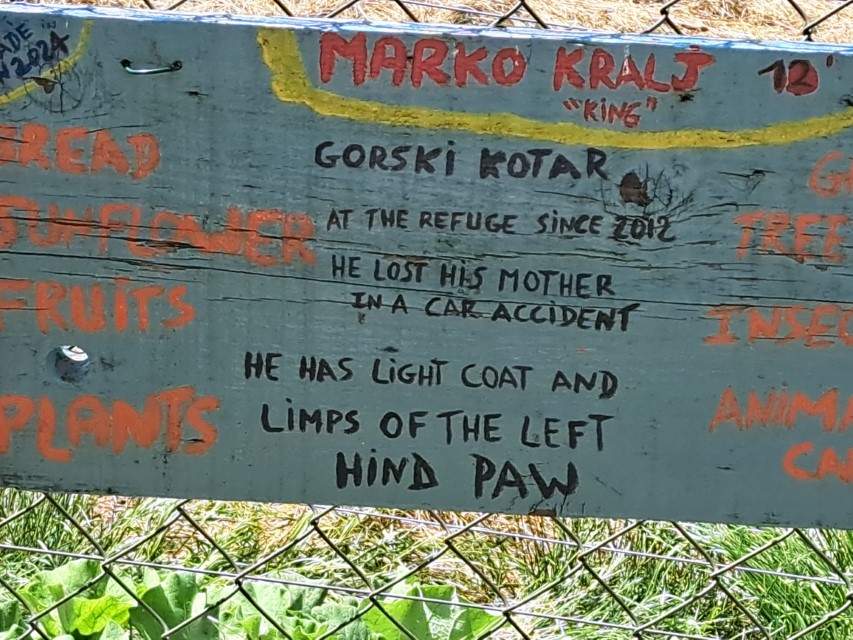 MARKO KRALJ 12'
"KiNG"
GORSKi KOTAR
AT THE REFUGE SiNCE 2012
HE LOST HiS MOTHER
IN A CAR ACCiDENT
HE HAS LiGHT COAT AND
LiMPS OF THE LEFT
HiND PAW
SUNFLOWER
FRUiTS
PLANTS